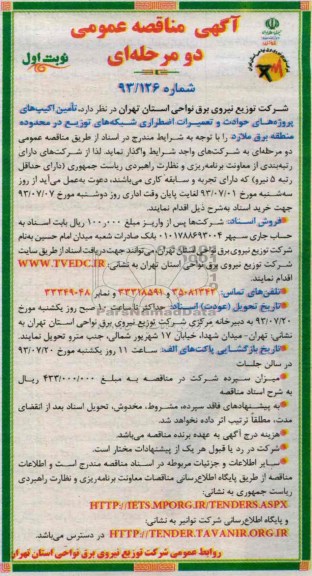 آگهی مناقصه عمومی
دو مرحله‌ای
نوبت اول
شماره ۹۳/۱۲۶
شرکت توزیع نیروی برق نواحی استان تهران در نظر دارد، تأمین اکیپ‌های
پروژه‌های حوادث و تعمیرات اضطراری شبکه‌های توزیع در محدوده
منطقه برق ملارد را با توجه به شرایط مندرج در اسناد از طریق مناقصه عمومی
دو مرحله‌ای به شرکت‌های واجد شرایط واگذار نماید لذا از شرکت‌های دارای
رتبه‌بندی از معاونت برنامه‌ریزی و نظارت راهبردی ریاست جمهوری (دارای حداقل
رتبه ۵ نیرو) که دارای تجربه و سابقه کاری می‌باشند، دعوت به‌عمل می‌آید از روز
سه‌شنبه مورخ ۹۳/۰۷/۰۱ لغایت پایان وقت اداری روز دوشنبه مورخ ۹۳/۰۷/۰۷
جهت خرید اسناد به‌شرح ذیل اقدام نمایند.
فروش اسناد: شرکت‌ها پس از واریز مبلغ ۱۰۰٫۰۰۰ ریال بابت اسناد به
حساب جاری سپهر ۰۱۰۱۷۸۸۶۹۳۰۰۴ بانک صادرات شعبه میدان امام حسین به‌نام
شرکت توزیع نیروی برق نواحی استان تهران می‌توانند جهت دریافت اسناد از طریق سایت
شرکت توزیع نیروی برق نواحی استان تهران به نشانی: WWW.TVEDC.IR
اقدام نمایند.
تلفن‌های تماس: ۳۵۰۸۱۳۴۲ ، ۳۳۳۱۸۵۹۱ و نمابر ۳۳۳۴۹۰۴۸
تاریخ تحویل (عودت) اسناد: حداکثر تا ساعت ۱۰ صبح روز یکشنبه مورخ
۹۳/۰۷/۲۰ به دبیرخانه مرکزی شرکت توزیع نیروی برق نواحی استان تهران به
نشانی: تهران- میدان شهدا، خیابان ۱۷ شهریور شمالی، جنب مترو تحویل نمایند.
تاریخ بازگشایی پاکت‌های الف: ساعت ۱۱ روز یکشنبه مورخ ۹۳/۰۷/۲۰
در سالن جلسات
میزان سپرده شرکت در مناقصه به مبلغ ۴۳۳/۰۰۰/۰۰۰ ریال
به شرح اسناد مناقصه
به پیشنهادهای فاقد سپرده، مشروط، مخدوش، تحویل اسناد بعد از انقضای
مدت، مطلقاً ترتیب اثر داده نخواهد شد.
هزینه درج آگهی به عهده برنده مناقصه می‌باشد.
شرکت در رد یا قبول هر یک از پیشنهادات مختار است.
سایر اطلاعات و جزئیات مربوطه در اسناد مناقصه مندرج است و اطلاعات
مناقصه از طریق پایگاه اطلاع‌رسانی مناقصات معاونت برنامه‌ریزی و نظارت راهبردی
ریاست جمهوری به نشانی:
HTTP://IETS.MPORG.IR/TENDERS.ASPX
و پایگاه اطلاع‌رسانی شرکت توانیر به نشانی:
HTTP://TENDER.TAVANIR.ORG.IR در دسترس می‌باشد.
روابط عمومی شرکت توزیع نیروی برق نواحی استان تهران